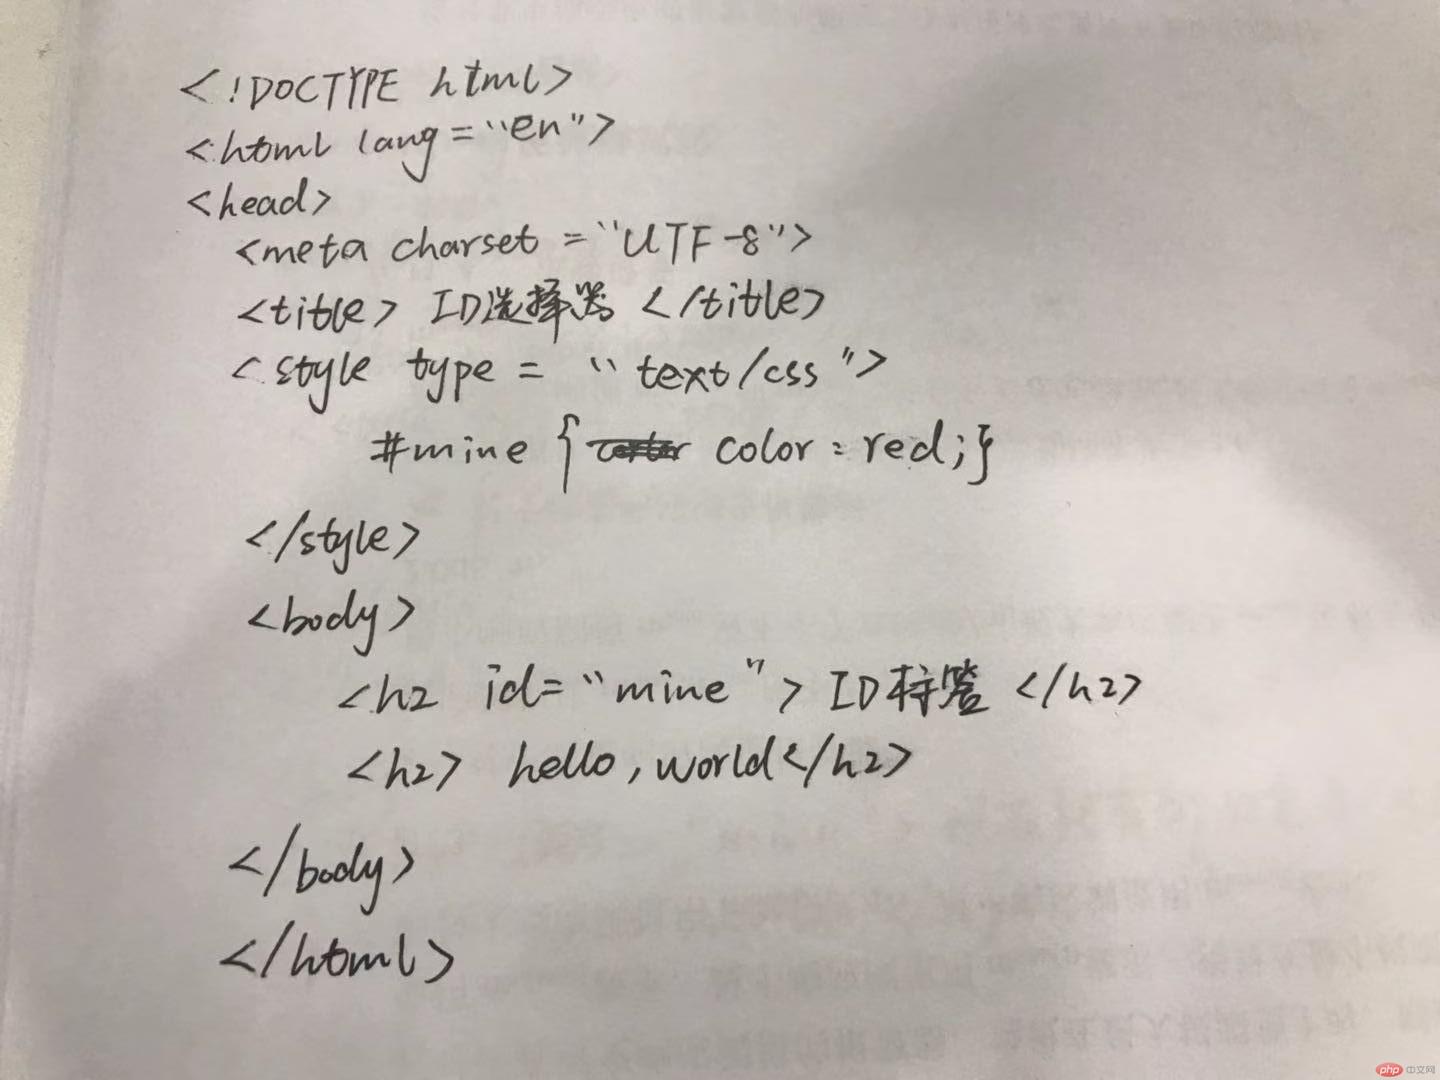 <!DOCTYPE html>
<html lang="en">
<head>
<meta charset="UTF-8">
<title> ID选择器 </title>
<style type = "text/css">
#mine { color: red;}
</style>
<body>
<h2 id="mine"> ID标签 </h2>
<h2> hello, world</h2>
</body>
</html>
php 中文网